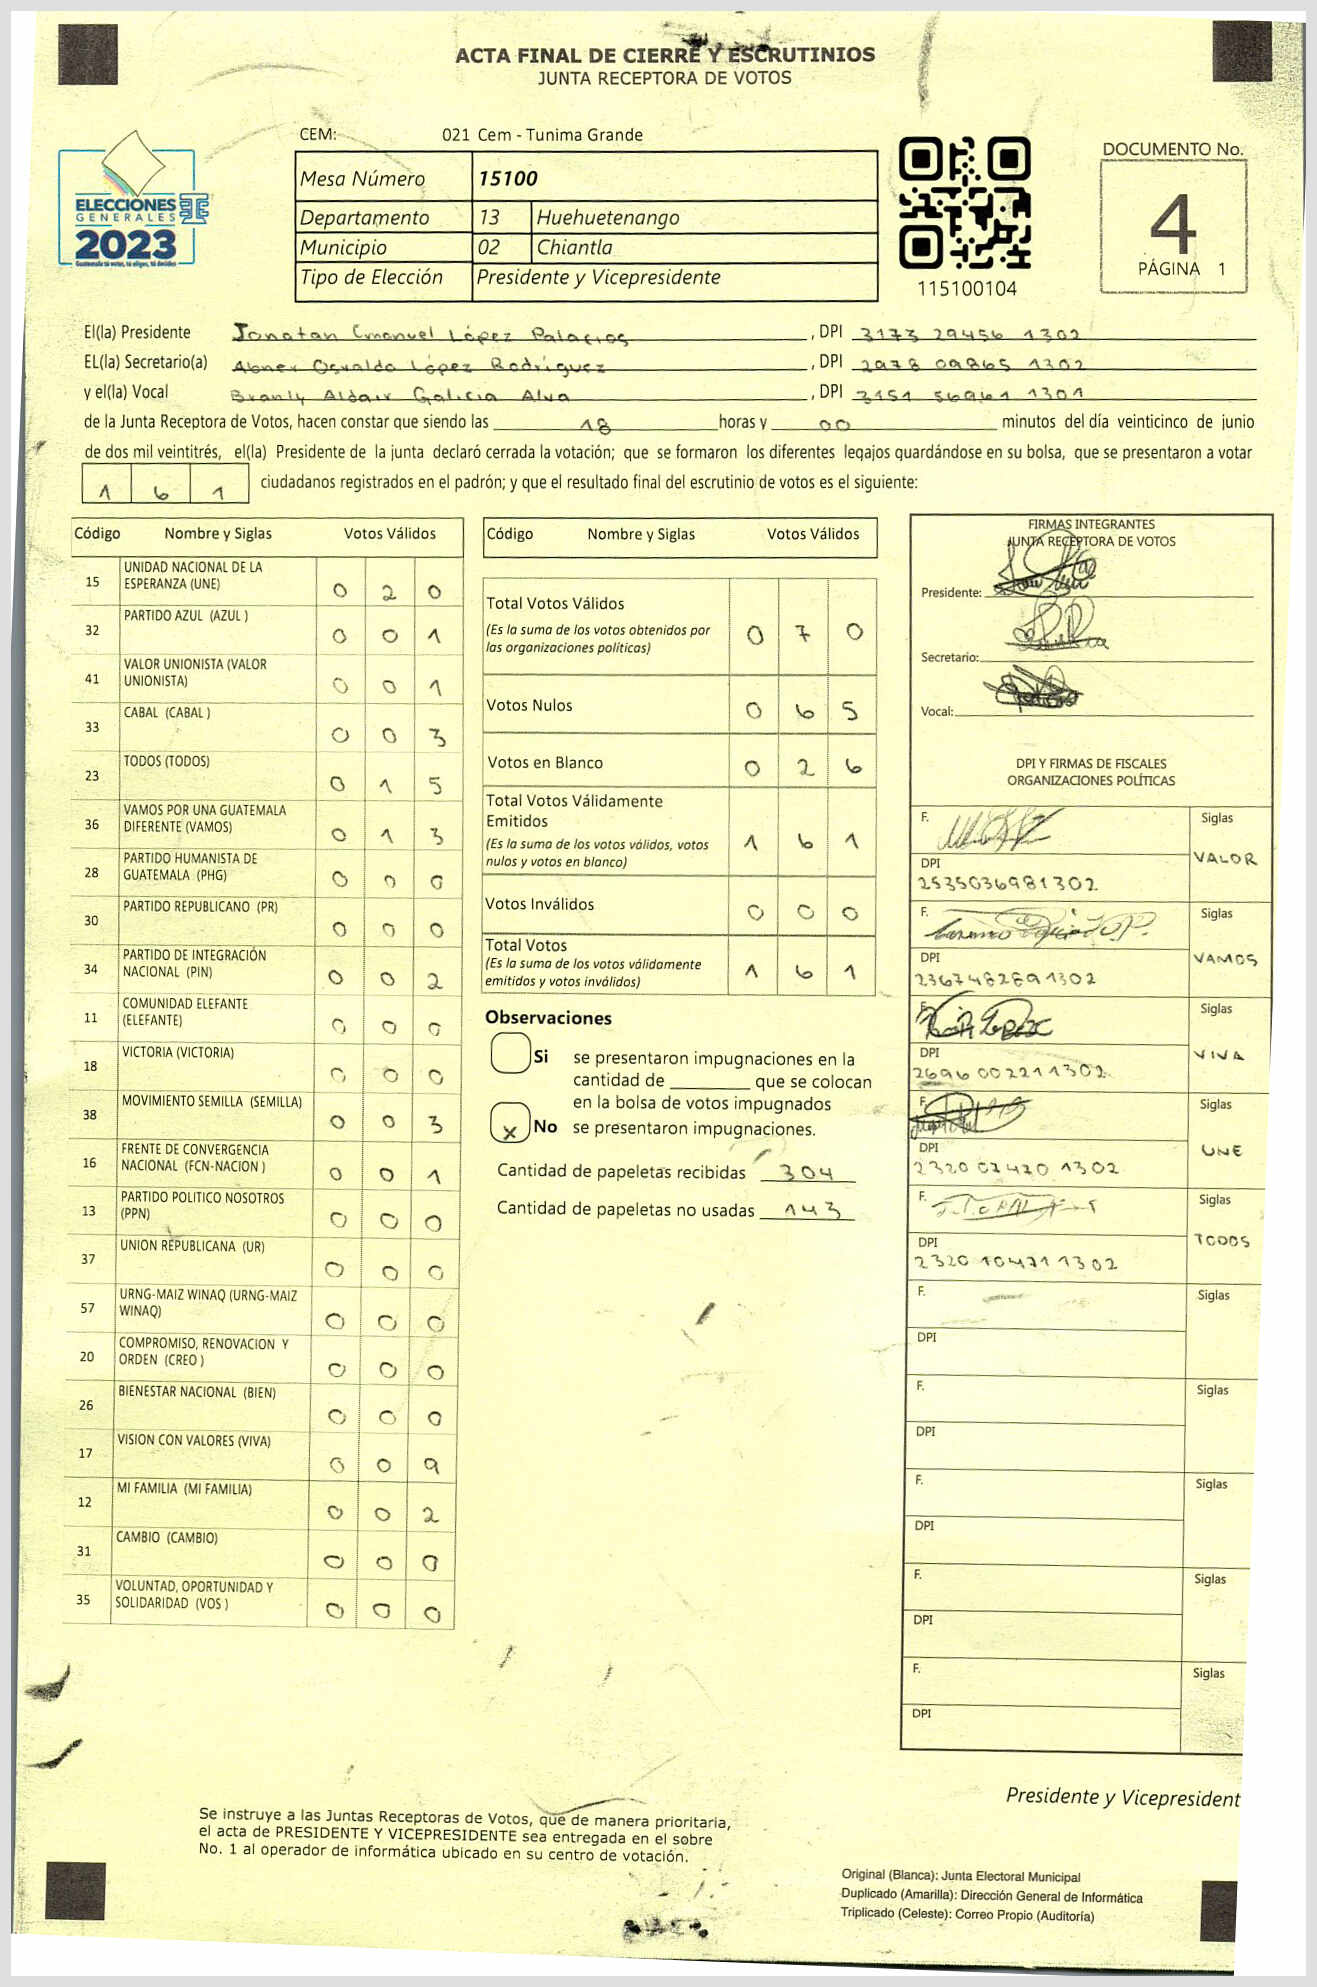 ACTA FINAL DE CIERRE Y ESCRUTINIOS
JUNTA RECEPTORA DE VOTOS
CEM: 021 Cem - Tunima Grande
ELECCIONES
GENERALES
2023
Guatemala tu votas, tu eliges, tu decides
Mesa Número 15100
Departamento 13 Huehuetenango
Municipio 02 Chiantla
Tipo de Elección Presidente y Vicepresidente
115100104
DOCUMENTO No.
4
PÁGINA 1
El(la) Presidente Jonatan Emanuel López Palacios, DPI 3173 29456 1302
EL(la) Secretario(a) Abner Osvaldo López Rodríguez, DPI 2978 09865 1302
y el(la) Vocal Branly Aldair Galicia Alva, DPI 3151 56961 1301
de la Junta Receptora de Votos, hacen constar que siendo las 18 horas y 00 minutos del día veinticinco de junio
de dos mil veintitrés, el(la) Presidente de la junta declaró cerrada la votación; que se formaron los diferentes legajos guardándose en su bolsa, que se presentaron a votar
1 6 1 ciudadanos registrados en el padrón; y que el resultado final del escrutinio de votos es el siguiente:
Código Nombre y Siglas Votos Válidos
15 UNIDAD NACIONAL DE LA ESPERANZA (UNE) 0 2 0
32 PARTIDO AZUL (AZUL ) 0 0 1
41 VALOR UNIONISTA (VALOR UNIONISTA) 0 0 1
33 CABAL (CABAL ) 0 0 3
23 TODOS (TODOS) 0 1 5
36 VAMOS POR UNA GUATEMALA DIFERENTE (VAMOS) 0 1 3
28 PARTIDO HUMANISTA DE GUATEMALA (PHG) 0 0 0
30 PARTIDO REPUBLICANO (PR) 0 0 0
34 PARTIDO DE INTEGRACIÓN NACIONAL (PIN) 0 0 2
11 COMUNIDAD ELEFANTE (ELEFANTE) 0 0 0
18 VICTORIA (VICTORIA) 0 0 0
38 MOVIMIENTO SEMILLA (SEMILLA) 0 0 3
16 FRENTE DE CONVERGENCIA NACIONAL (FCN-NACION ) 0 0 1
13 PARTIDO POLITICO NOSOTROS (PPN) 0 0 0
37 UNION REPUBLICANA (UR) 0 0 0
57 URNG-MAIZ WINAQ (URNG-MAIZ WINAQ) 0 0 0
20 COMPROMISO, RENOVACION Y ORDEN (CREO ) 0 0 0
26 BIENESTAR NACIONAL (BIEN) 0 0 0
17 VISION CON VALORES (VIVA) 0 0 9
12 MI FAMILIA (MI FAMILIA) 0 0 2
31 CAMBIO (CAMBIO) 0 0 0
35 VOLUNTAD, OPORTUNIDAD Y SOLIDARIDAD (VOS ) 0 0 0
Código Nombre y Siglas Votos Válidos
Total Votos Válidos 0 7 0
(Es la suma de los votos obtenidos por
las organizaciones políticas)
Votos Nulos 0 6 5
Votos en Blanco 0 2 6
Total Votos Válidamente
Emitidos 1 6 1
(Es la suma de los votos válidos, votos
nulos y votos en blanco)
Votos Inválidos 0 0 0
Total Votos 1 6 1
(Es la suma de los votos válidamente
emitidos y votos inválidos)
Observaciones
Si se presentaron impugnaciones en la
cantidad de ________ que se colocan
en la bolsa de votos impugnados
x No se presentaron impugnaciones.
Cantidad de papeletas recibidas 304
Cantidad de papeletas no usadas 143
FIRMAS INTEGRANTES
JUNTA RECEPTORA DE VOTOS
Presidente:
Secretario:
Vocal:
DPI Y FIRMAS DE FISCALES
ORGANIZACIONES POLÍTICAS
F. Siglas
VALOR
DPI
2535036981302
F. Siglas
VAMOS
DPI
2367482891302
F. Siglas
VIVA
DPI
2696002211302
F. Siglas
UNE
DPI
2320 07470 1302
F. Siglas
TODOS
DPI
2320 10471 1302
F. Siglas
DPI
F. Siglas
DPI
F. Siglas
DPI
F. Siglas
DPI
F. Siglas
DPI
Presidente y Vicepresident
Se instruye a las Juntas Receptoras de Votos, que de manera prioritaria,
el acta de PRESIDENTE Y VICEPRESIDENTE sea entregada en el sobre
No. 1 al operador de informática ubicado en su centro de votación.
Original (Blanca): Junta Electoral Municipal
Duplicado (Amarilla): Dirección General de Informática
Triplicado (Celeste): Correo Propio (Auditoría)